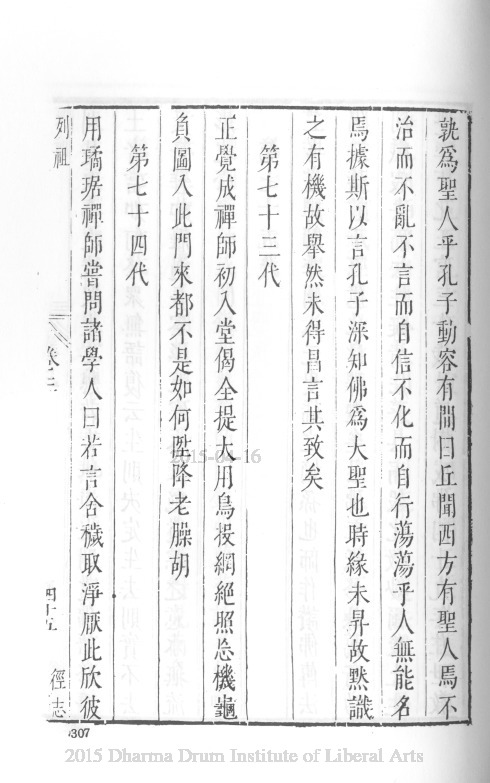 孰為聖人乎孔子動容有間曰丘聞西方有聖人焉不
治而不亂不言而自信不化而自行蕩蕩乎人無能名
焉據斯以言孔子深知佛為大聖也時緣未昇故默識
之有機故舉然未得昌言其致矣
第七十三代
正覺成禪師初入堂偈全提大用鳥投網絕照忘機龜
負圖入此門來都不是如何陞降老臊胡
第七十四代
用璚琚禪師嘗問諸學人曰若言舍穢取淨厭此欣彼
列祖
卷三
四十五
徑志
307
2015-04-16
2015 Dharma Drum Institute of Liberal Arts